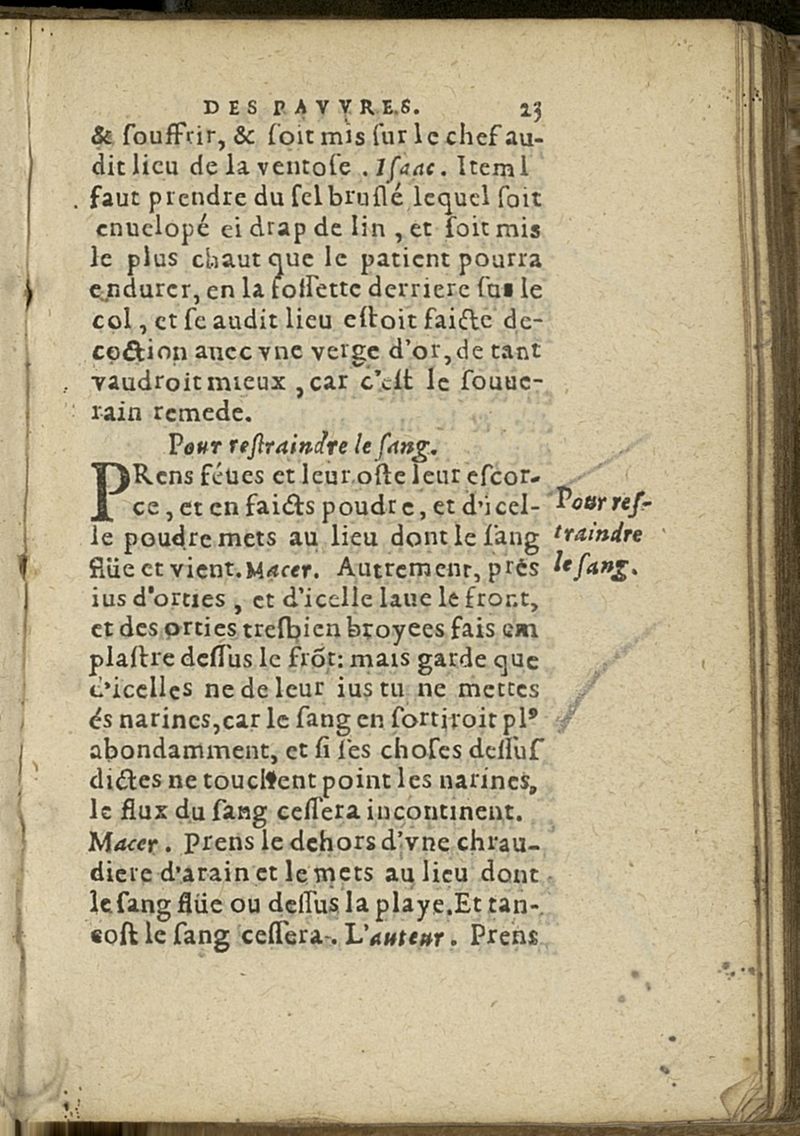 DES PAVVRES. 23
& ſouffrir, & ſoit mis ſur le chef au-
dit lieu de la ventoſe . Iſaac. Item l
faut prendre du ſel bruſlé lequel ſoit
enuelopé ei drap de lin , et ſoit mis
le plus chaut que le patient pourra
endurer, en la foſſette derriere ſus le
col , et ſe audit lieu eſtoit faicte de-
coction auec vne verge d'or, de tant
vaudroit mieux , car c'eſt le ſouue-
rain remede.
Pour reſtraindre le ſang.
PRens féues et leur oſte leur eſcor-
ce , et en faicts poudre, et d'icel-
le poudre mets au lieu dont le ſang
flüe et vient. Macer. Autrement, prēs
ius d'orties , et d'icelle laue le front,
et des orties treſbien broyees fais em
plaſtre deſſus le frōt: mais garde que
d'icelles ne de leur ius tu ne mettes
és narines, car le ſang en ſortiroit plꝰ
abondamment, et ſi ſes choſes deſſuſ
dictes ne touchent point les narines,
le flux du ſang ceſſera incontinent.
Macer . Prens le dehors d'vne chrau-
diere d'arain et le mets au lieu dont
le ſang flüe ou deſſus la playe. Et tan-
toſt le ſang ceſſera . L'auteur . Prens
Pour reſ-
traindre
le ſang.